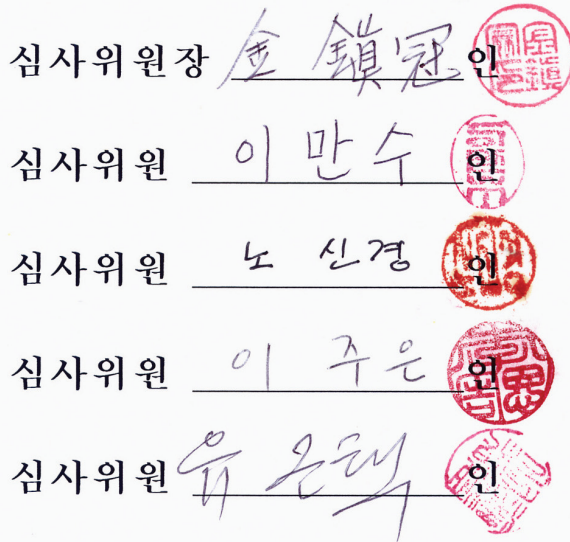 심사위원장 金 鎭 冠 인
심사위원 이 만 수 인
심사위원 노 신 경 인
심사위원 이 주 은 인
심사위원 유 인